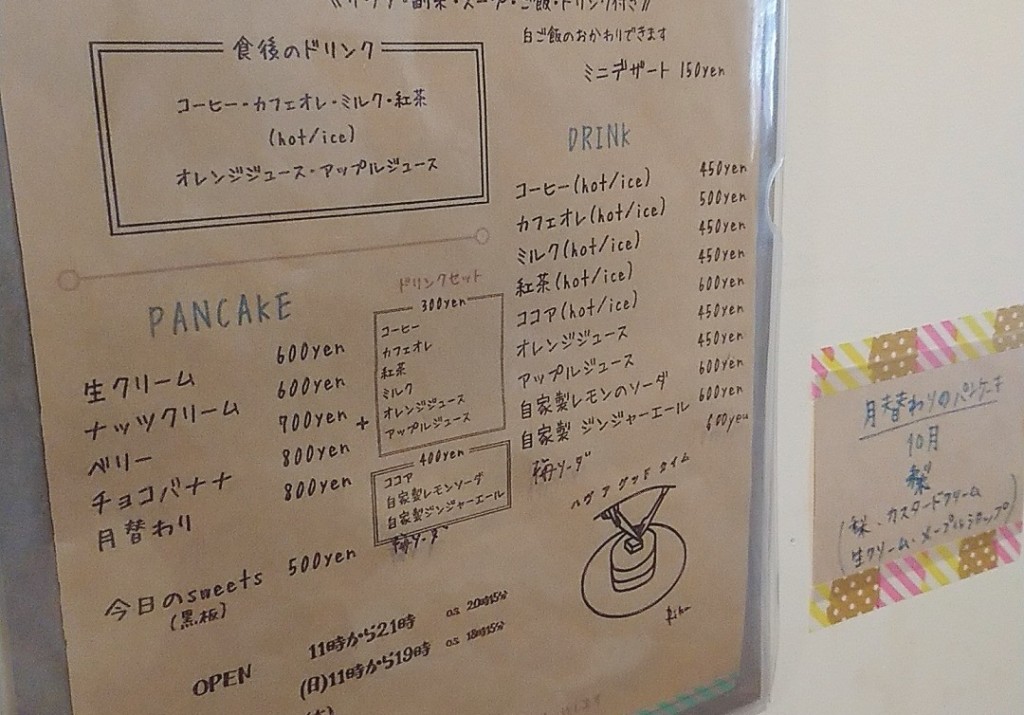 白ご飯のおかわりできます
ミニデザート 150yen
食後のドリンク
コーヒー・カフェオレ・ミルク・紅茶
(hot/ice)
オレンジジュース・アップルジュース
DRINK
コーヒー(hot/ice) 450yen
カフェオレ(hot/ice) 500yen
ミルク(hot/ice) 450yen
紅茶(hot/ice) 450yen
ココア(hot/ice) 600yen
オレンジジュース 450yen
アップルジュース 450yen
自家製レモンのソーダ 600yen
自家製 ジンジャーエール 600yen
梅ソーダ 600yen
PANCAKE
生クリーム 600yen
ナッツクリーム 600yen
ベリー 700yen
チョコバナナ 800yen
月替わり 800yen
+
ドリンクセット
300yen
コーヒー
カフェオレ
紅茶
ミルク
オレンジジュース
アップルジュース
400yen
ココア
自家製レモンソーダ
自家製ジンジャーエール
梅ソーダ
今日のsweets 500yen
(黒板)
ハヴ ア グッド タイム
OPEN
11時から21時 o.s 20時15分
(日)11時から19時 o.s 18時15分
月替わりのパンケーキ
10月
梨
(梨、カスタードクリーム
生クリーム、メープルシロップ)